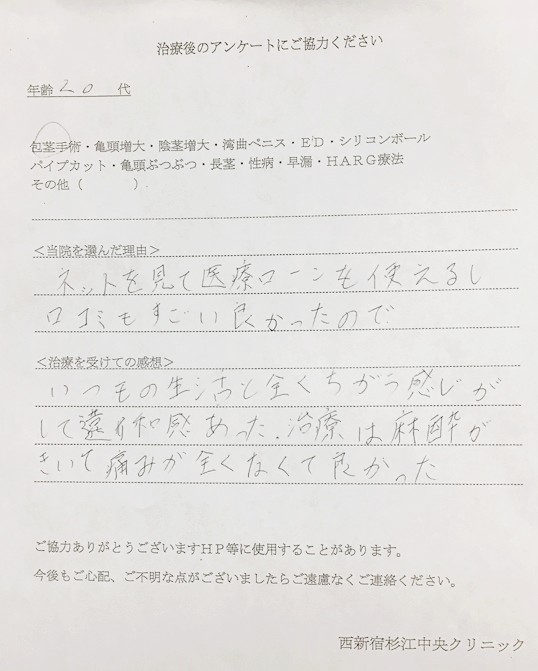 治療後のアンケートにご協力ください
年齢 20 代
包茎手術・亀頭増大・陰茎増大・湾曲ペニス・ED・シリコンボール
パイプカット・亀頭ぶつぶつ・長茎・性病・早漏・HARG療法
その他（　　　）
＜当院を選んだ理由＞
ネットを見て医療ローンも使えるし
口コミもすごい良かったので
＜治療を受けての感想＞
いつもの生活と全くちがう感じが
して違和感あった.治療は麻酔が
きいて痛みが全くなくて良かった
ご協力ありがとうございますHP等に使用することがあります。
今後もご心配、ご不明な点がございましたらご遠慮なくご連絡ください。
西新宿杉江中央クリニック